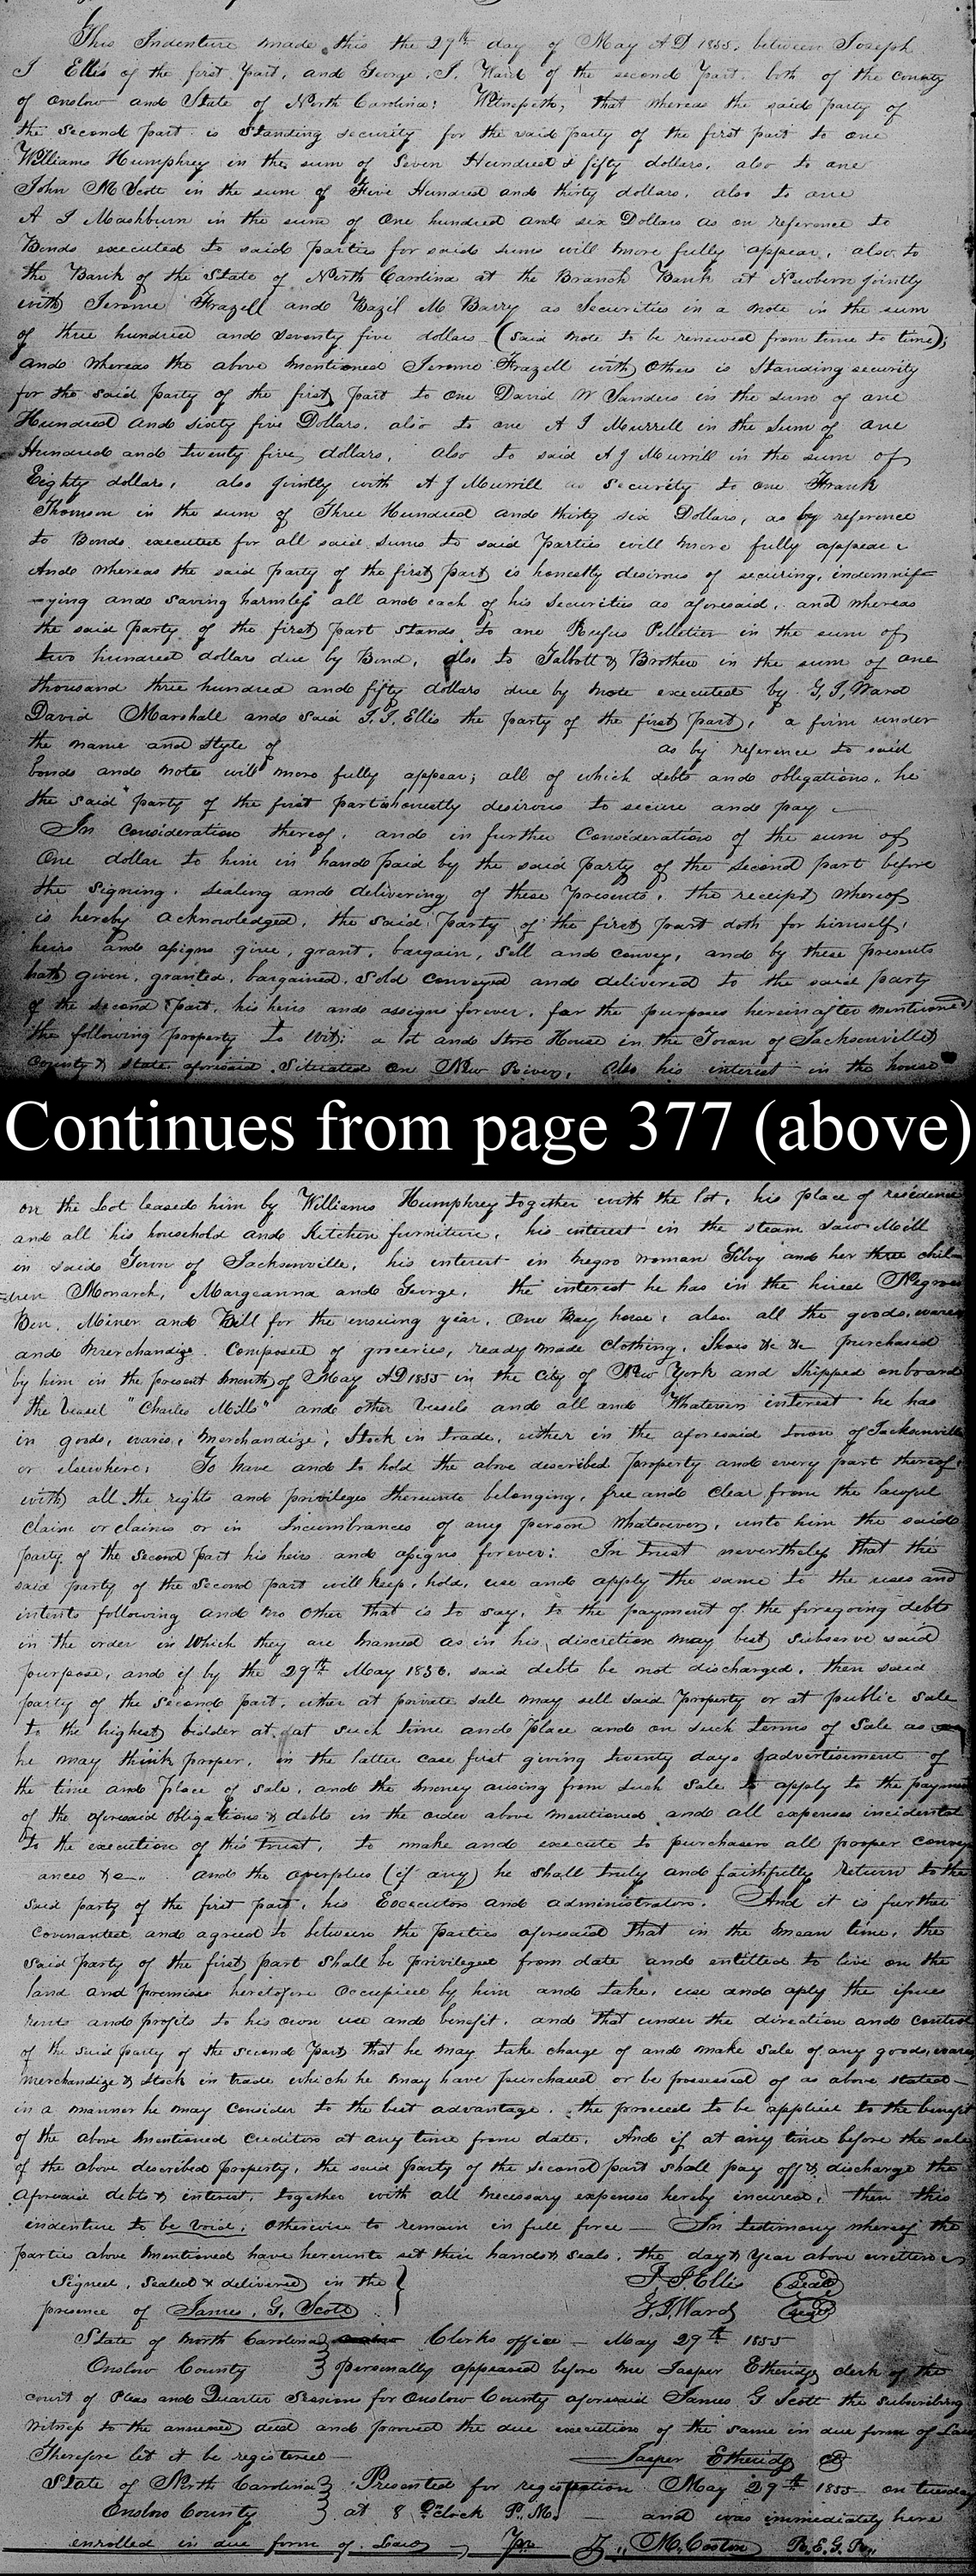 This Indenture made this the 29th day of May AD 1855. between Joseph
J Ellis of the first part, and George. J. Ward of the second part. both of the county
of onslow and State of North Carolina; Witnesseth, that whereas the said party of
the second part is Standing security for the said party of the first part to one
Williams Humphrey in the sum of Seven Hundred & fifty dollars. also to one
John M Scott in the sum of Five Hundred and thirty dollars. also to one
A J Mashburn in the sum of One hundred and six Dollars as on reference to
Bonds executed to said parties for said sums will more fully appear, also to
the Bank of the State of North Carolina at the Branch Bank at Newbern jointly
with Jerome Frazell and Bazil M. Barry as Securities in a note in the sum
of three hundred and Seventy five dollars (said note to be renewed from time to time);
and whereas the above mentioned Jerome Frazell with others is Standing security
for the said party of the first part to one David W Sanders in the sum of one
Hundred and sixty five Dollars. also to one A J Murrell in the sum of one
Hundred and twenty five dollars, also to said A J Murrill in the sum of
Eighty dollars, also jointly with A J Murrill as Security to one Frank
Thomson in the sum of Three Hundred and thirty six Dollars, as by reference
to Bonds executed for all said sums to said Parties will more fully appear.
And whereas the said party of the first part is honestly desirous of securing, indemnif-
-ying and saving harmless all and each of his Securities as aforesaid. and whereas
the said party of the first part stands to one Rufus Pelletier in the sum of
two hundred dollars due by Bond, also to Talbott & Brothers in the sum of one
thousand three hundred and fifty dollars due by note executed by G. J. Ward
David Marshall and said J. J. Ellis the party of the first part, a firm under
the name and style of as by reference to said
bonds and notes will more fully appear; all of which debts and obligations, he
the said party of the first part is honestly desirous to secure and pay
In consideration thereof, and in further Consideration of the sum of
One dollar to him in hand paid by the said party of the second part before
the signing, sealing and delivering of these presents, the receipt whereof
is hereby acknowledged, the said party of the first part doth for himself,
heirs and assigns give, grant, bargain, sell and convey, and by these presents
hath given, granted, bargained, Sold conveyed and delivered to the said party
of the second part, his heirs and assigns forever, for the purposes hereinafter mentioned
the following property to wit: a lot and Store House in the Town of Jacksonville
County & state aforesaid. Situated on New River, also his interest in the house
Continues from page 377 (above)
on the Lot leased him by Williams Humphrey together with the lot, his place of residence
and all his household and Kitchen furniture, his interest in the steam Saw Mill
in said Town of Jacksonville, his interest in negro woman Silvy and her three chil-
dren Monarch, Margeanna and George, the interest he has in the hired Negroes
Ben, Miner and Bill for the ensuing year, One Bay horse, also all the goods, wares
and Merchandize composed of groceries, ready made Clothing, Shoes &c &c purchased
by him in the present month of May AD 1855 in the City of New York and Shipped on board
the Vessel "Charles Mills" and other Vessels and all and Whatever interest he has
in goods, wares, Merchandize, Stock in trade, either in the aforesaid town of Jacksonville
or elsewhere: To have and to hold the above described Property and every part thereof
with all the rights and privileges thereunto belonging, free and clear from the lawful
claim or claims or in Incumbrances of any person Whatsoever, unto him the said
party of the second part his heirs and assigns forever: In trust nevertheless that the
said party of the second part will keep, hold, use and apply the same to the uses and
intents following and no other that is to say, to the payment of the foregoing debts
in the order in which they are named as in his discretion may best subserve said
purpose, and if by the 29th May 1856. said debts be not discharged, then said
party of the second part, either at private sale may sell said Property or at public sale
to the highest bidder at at such time and place and on such terms of Sale as
he may think proper, in the latter case first giving twenty days advertisement of
the time and Place of sale, and the money arising from such sale to apply to the paymen
of the aforesaid obligations & debts in the order above mentioned and all expenses incidental
to the execution of this trust, to make and execute to purchasers all proper convey
ances &c.. and the overplus (if any) he shall truly and faithfully return to the
said party of the first part, his Executors and administrators. And it is further
covenanted and agreed to between the parties aforesaid that in the mean time, the
said party of the first part shall be privileged from date and entitled to live on the
land and premises heretofore occupied by him and take, use and aply the issues
rents and profits to his own use and benefit. and that under the direction and control
of the said party of the second part, that he may take charge of and make sale of any goods, wares
merchandize & stock in trade which he may have purchased or be possessed of as above stated
in a manner he may consider to the best advantage. the proceeds to be applied to the benefit
of the above mentioned creditors at any time from date. And if at any time before the sale
of the above described property, the said party of the second part shall pay off & discharge the
aforesaid debts & interest, together with all necessary expenses hereby incured, then this
indenture to be void, otherwise to remain in full force — In testimony whereof the
parties above mentioned have hereunto set their hands & seals, the day & Year above written
Signed, Sealed & delivered in the } J. J Ellis (Seal)
presence of James. G. Scott G. J. Ward (Seal)
State of North Carolina } Clerks office — May 29th 1855
Onslow County } personally appeared before me Jasper Etheridge clerk of the
court of Pleas and Quarter Sessions for Onslow County aforesaid James G Scott the subscribing
Witness to the annexed deed and proved the due execution of the same in due form of Law
Therefore let it be registered — Jasper Etheridge Clk
State of North Carolina } Presented for registration May 29th 1855 on tuesday
Onslow County } at 8 O'clock P. M. — and was immediately here
enrolled in due form of Law, M. Coston